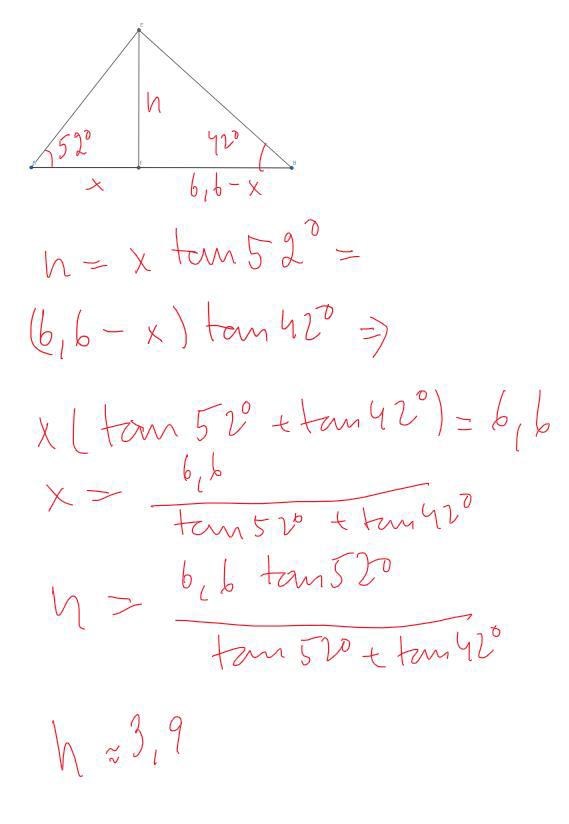 h
52° 42°
x 6,6-x
h = x tan 52° =
(6,6 - x) tan 42° ⇒
x(tan 52° + tan 42°) = 6,6
x = 6,6
tan 52° + tan 42°
h = 6,6 tan 52°
tan 52° + tan 42°
h ≈ 3,9